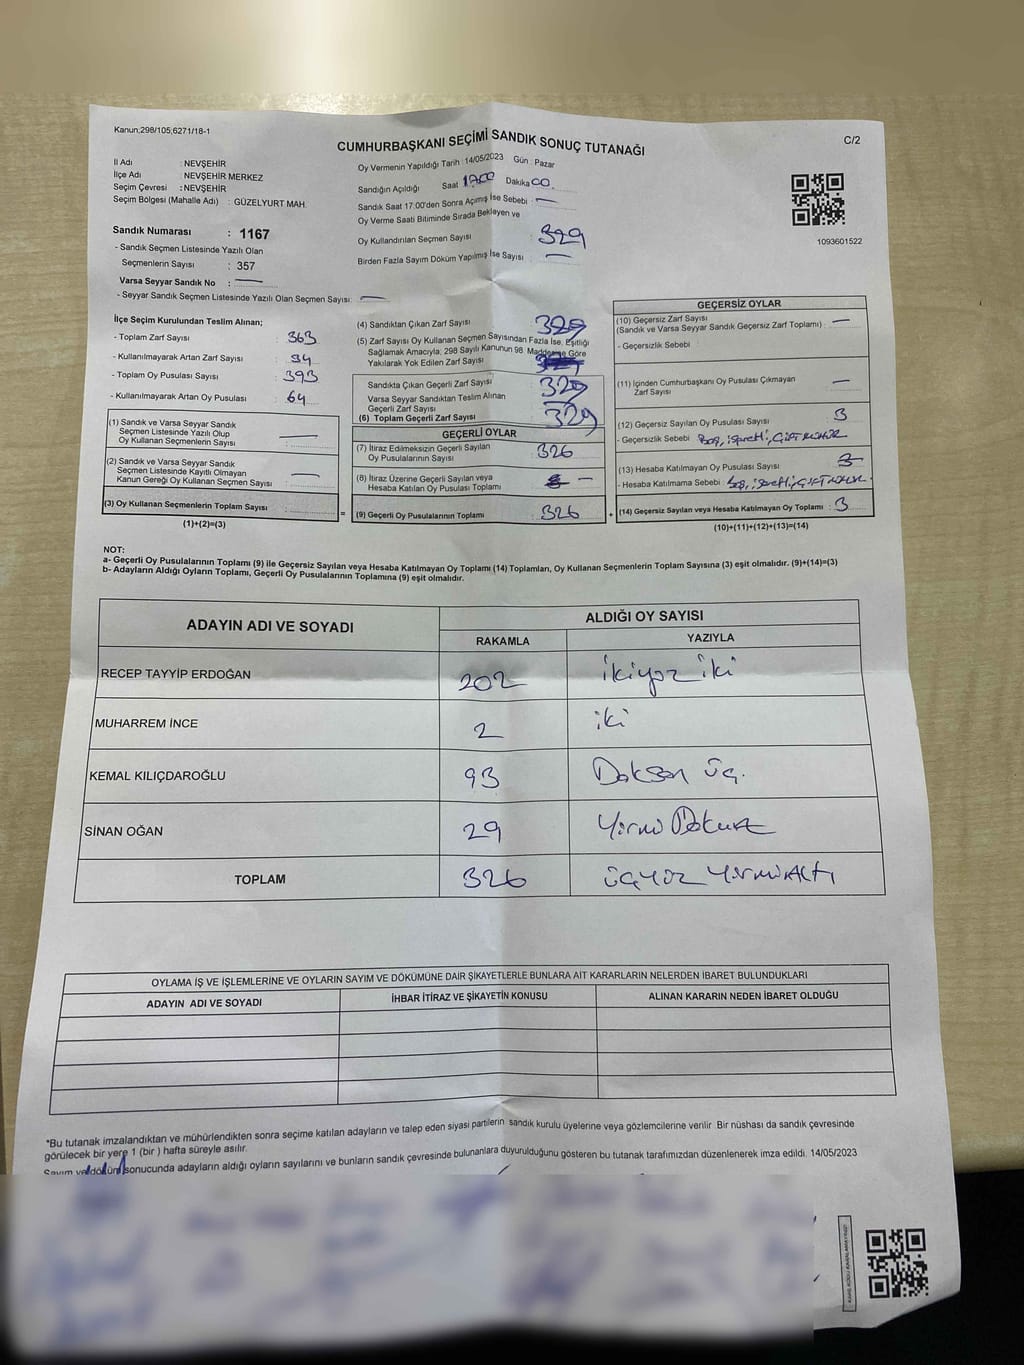 Kanun;298/105;6271/18-1
CUMHURBAŞKANI SEÇİMİ SANDIK SONUÇ TUTANAĞI
C/2
İl Adı : NEVŞEHİR
İlçe Adı NEVŞEHİR MERKEZ
Seçim Çevresi : NEVŞEHİR
Seçim Bölgesi (Mahalle Adı) : GÜZELYURT MAH.
Sandık Numarası : 1167
- Sandık Seçmen Listesinde Yazılı Olan
Seçmenlerin Sayısı : 357
Varsa Seyyar Sandık No :
- Seyyar Sandık Seçmen Listesinde Yazılı Olan Seçmen Sayısı:
Oy Vermenin Yapıldığı Tarih : 14/05/2023 Gün : Pazar
Sandığın Açıldığı Saat 17.00 Dakika 00.
Sandık Saat 17:00'den Sonra Açımış İse Sebebi :
Oy Verme Saati Bitiminde Sırada Bekleyen ve
Oy Kullandırılan Seçmen Sayısı : 329
Birden Fazla Sayım Döküm Yapılmış İse Sayısı :
1093601522
İlçe Seçim Kurulundan Teslim Alınan;
- Toplam Zarf Sayısı : 363
- Kullanılmayarak Artan Zarf Sayısı : 34
- Toplam Oy Pusulası Sayısı : 393
- Kullanılmayarak Artan Oy Pusulası : 64
(1) Sandık ve Varsa Seyyar Sandık
Seçmen Listesinde Yazılı Olup
Oy Kullanan Seçmenlerin Sayısı :
(2) Sandık ve Varsa Seyyar Sandık
Seçmen Listesinde Kayıtlı Olmayan
Kanun Gereği Oy Kullanan Seçmen Sayısı :
(3) Oy Kullanan Seçmenlerin Toplam Sayısı :
(1)+(2)=(3)
=
(4) Sandıktan Çıkan Zarf Sayısı : 329
(5) Zarf Sayısı Oy Kullanan Seçmen Sayısından Fazla İse, Eşitliği
Sağlamak Amacıyla, 298 Sayılı Kanunun 98. Maddesine Göre
Yakılarak Yok Edilen Zarf Sayısı
Sandıkta Çıkan Geçerli Zarf Sayısı : 329
Varsa Seyyar Sandıktan Teslim Alınan
Geçerli Zarf Sayısı
(6) Toplam Geçerli Zarf Sayısı : 329
GEÇERLİ OYLAR
(7) İtiraz Edilmeksizin Geçerli Sayılan
Oy Pusulalarının Sayısı : 326
(8) İtiraz Üzerine Geçerli Sayılan veya
Hesaba Katılan Oy Pusulası Toplamı : –
(9) Geçerli Oy Pusulalarının Toplamı : 326
+
GEÇERSİZ OYLAR
(10) Geçersiz Zarf Sayısı
(Sandık ve Varsa Seyyar Sandık Geçersiz Zarf Toplamı) : –
- Geçersizlik Sebebi :
(11) İçinden Cumhurbaşkanı Oy Pusulası Çıkmayan
Zarf Sayısı : –
(12) Geçersiz Sayılan Oy Pusulası Sayısı : 3
- Geçersizlik Sebebi : Boş, işaretli, ÇİFT MÜHÜR
(13) Hesaba Katılmayan Oy Pusulası Sayısı : 3
- Hesaba Katılmama Sebebi : Boş, işaretli, ÇİFT MÜHÜR.
(14) Geçersiz Sayılan veya Hesaba Katılmayan Oy Toplamı : 3
(10)+(11)+(12)+(13)=(14)
NOT:
a- Geçerli Oy Pusulalarının Toplamı (9) ile Geçersiz Sayılan veya Hesaba Katılmayan Oy Toplamı (14) Toplamları, Oy Kullanan Seçmenlerin Toplam Sayısına (3) eşit olmalıdır. (9)+(14)=(3)
b- Adayların Aldığı Oyların Toplamı, Geçerli Oy Pusulalarının Toplamına (9) eşit olmalıdır.
ADAYIN ADI VE SOYADI ALDIĞI OY SAYISI
RAKAMLA YAZIYLA
RECEP TAYYİP ERDOĞAN 202 ikiyüz iki
MUHARREM İNCE 2 iki
KEMAL KILIÇDAROĞLU 93 Doksan üç.
SİNAN OĞAN 29 Yirmi Dokuz
TOPLAM 326 üçyüz YirmiAltı
OYLAMA İŞ VE İŞLEMLERİNE VE OYLARIN SAYIM VE DÖKÜMÜNE DAİR ŞİKAYETLERLE BUNLARA AİT KARARLARIN NELERDEN İBARET BULUNDUKLARI
ADAYIN ADI VE SOYADI İHBAR İTİRAZ VE ŞİKAYETİN KONUSU ALINAN KARARIN NEDEN İBARET OLDUĞU
*Bu tutanak imzalandıktan ve mühürlendikten sonra seçime katılan adayların ve talep eden siyasi partilerin sandık kurulu üyelerine veya gözlemcilerine verilir Bir nüshası da sandık çevresinde
görülecek bir yere 1 (bir ) hafta süreyle asılır.
Sayım ve döküm sonucunda adayların aldığı oyların sayılarını ve bunların sandık çevresinde bulunanlara duyurulduğunu gösteren bu tutanak tarafımızdan düzenlenerek imza edildi. 14/05/2023